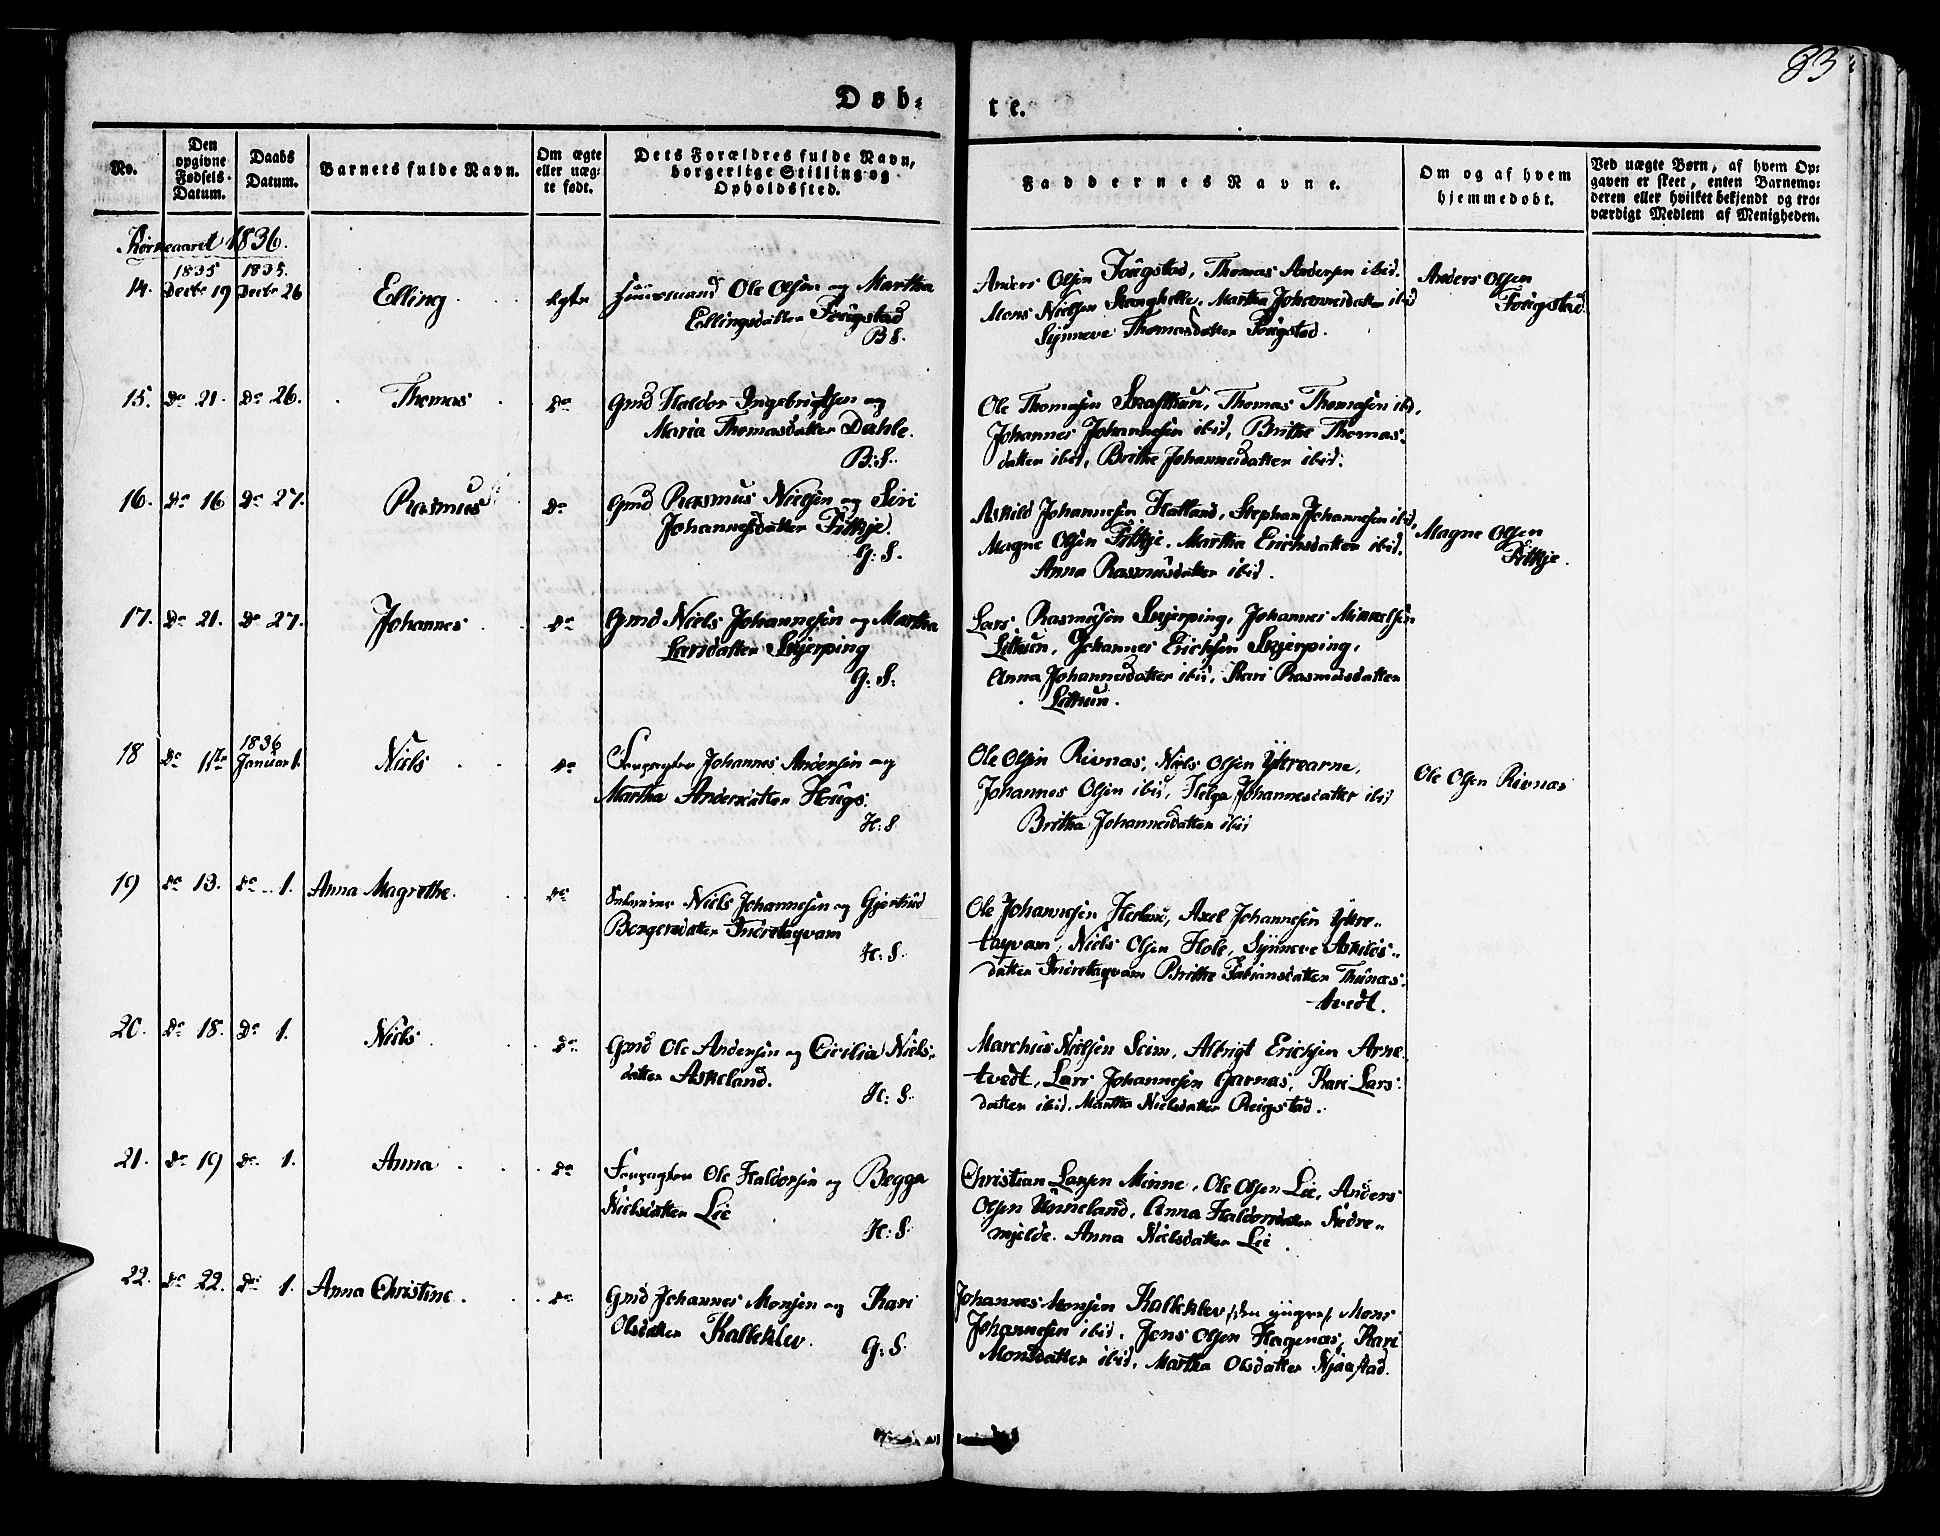 83
Døb-
te.
No.
Den opgivne Fødsels-Datum.
Daabs Datum.
Barnets fulde Navn.
Om ægte eller uægte født.
Dets Forældres fulde Navn, borgerlige Stilling og Opholdssted.
Faddernes Navne.
Om og af hvem hjemmedøbt.
Ved uægte Børn, af hvem Opgaven er skeet, enten Barnemoderen eller hvilket bekjendt og troværdigt Medlem af Menigheden.
Kirkeaaret 1836.
1835 1835.
14. Decbr 19 Decbr 26 Elling ægte Huusmand Ole Olsen og Martha
Ellingsdatter Fougstad
B.S.
Anders Olsen Fougstad, Thomas Andersen ibid.
Mons Nielsen Skanghelle, Martha Johannesdatter ibid
Synneve Thomasdatter Fougstad.
Anders Olsen
Fougstad.
15. Do 21. Do 26. Thomas Do Gmd Haldor Ingebrigtsen og
Maria Thomasdatter Dahle.
B:S.
Ole Thomasen Skafthun, Thomas Thomasen ibd,
Johannes Johannesen ibid, Brithe Thomas-
datter ibid, Brithe Johannesdatter ibid.
16. Do 16 Do 27. Rasmus Do Gmd Rasmus Nielsen og Siri
Johannesdatter Fitkje.
G:S.
Askild Johannesen Hatland, Stephan Johannesen ibd,
Magne Olsen Fitkje, Martha Erichsdatter ibid.
Anna Rasmusdatter ibid.
Magne Olsen
Fitkje.
17. Do 21. Do 27. Johannes Do Gmd Niels Johannesen og Martha
Larsdatter Skjerping
G:S.
Lars Rasmusen Skjerping, Johannes Mikkelsen
Littun, Johannes Erichsen Skjerping,
Anna Johannesdatter ibid, Kari Rasmusdatter
Littun.
1836
18 Do Januar 1. Niels Do Forpagter Johannes Andersen og
Martha Andersdatter Hougs.
H:S
Ole Olsen Rivnas, Niels Olsen Yttrearne,
Johannes Olsen ibid, Helga Johannesdatter ibid
Britha Johannesdatter ibid
Ole Olsen Rivnas
19 Do 13. Do 1. Anna Magrethe. Do Niels Johannesen og Gjertrud
Borgersdatter Indretaqvam
H:S.
Ole Johannesen Herland, Axel Johannesen Yttre-
taqvam, Niels Olsen Hole, Synneve Askilds-
datter Indretaqvam Brithe Fabiansdatter Thunes-
tvedt.
20. Do 18. Do 1. Niels Do Gmd Ole Andersen og Cicilia Niels-
datter Askeland.
H:S.
Marchus Nielsen Seim, Albrigt Erichsen Arne-
tvedt, Lars Johannesen Garnas, Kari Lars-
datter ibid. Martha Nielsdatter Reigstad.
21. Do 19 Do 1. Anna Do Forpagter Ole Haldorsen og Begga
Nielsdatter Lie
H:S.
Christian Larsen Minne, Ole Olsen Lie, Anders
Olsen Unneland, Anna Haldorsdatter Nedre-
mjelde. Anna Nielsdatter Lie.
22. Do 22. Do 1. Anna Christine. Do Gmd Johannes Monsen og Kari
Olsdatter Kalleklev.
G:S.
Johannes Monsen Kalleklev, den yngre, Mons
Johannesen ibid. Jens Olsen Hagenæs, Kari
Monsdatter ibid, Martha Olsdatter